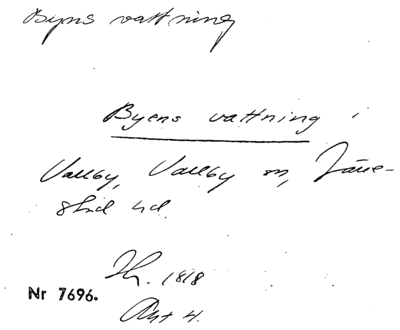 Byns vattning
Byens vattning i
Vallby, Vallby sn, Järre-
stad hd.
Sk. 1818
Nr 7696.
Akt 4.